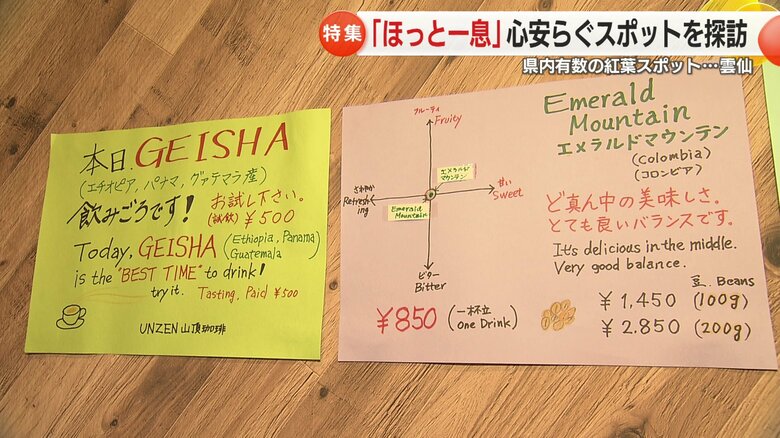 特集
「ほっと一息」心安らぐスポットを探訪
県内有数の紅葉スポット…雲仙
本日、GEISHA
(エチオピア, パナマ, グァテマラ産)
飲みごろです!
お試し下さい。
(試飲) ¥500
Today, GEISHA (Ethiopia, Panama, Guatemala)
is the "BEST TIME" to drink!
try it. Tasting, Paid ¥500
UNZEN 山頂珈琲
フルーティ
Fruity
さわやか
Refreshing
甘い
Sweet
エメラルド
マウンテン
Emerald
Mountain
ビター
Bitter
Emerald
Mountain
エメラルドマウンテン
(Colombia)
(コロンビア)
ど真ん中の美味しさ。
とても良いバランスです。
It's delicious in the middle.
Very good balance.
¥850 (一杯立 one Drink)
豆. Beans
¥1,450 (100g)
¥2.850 (200g)